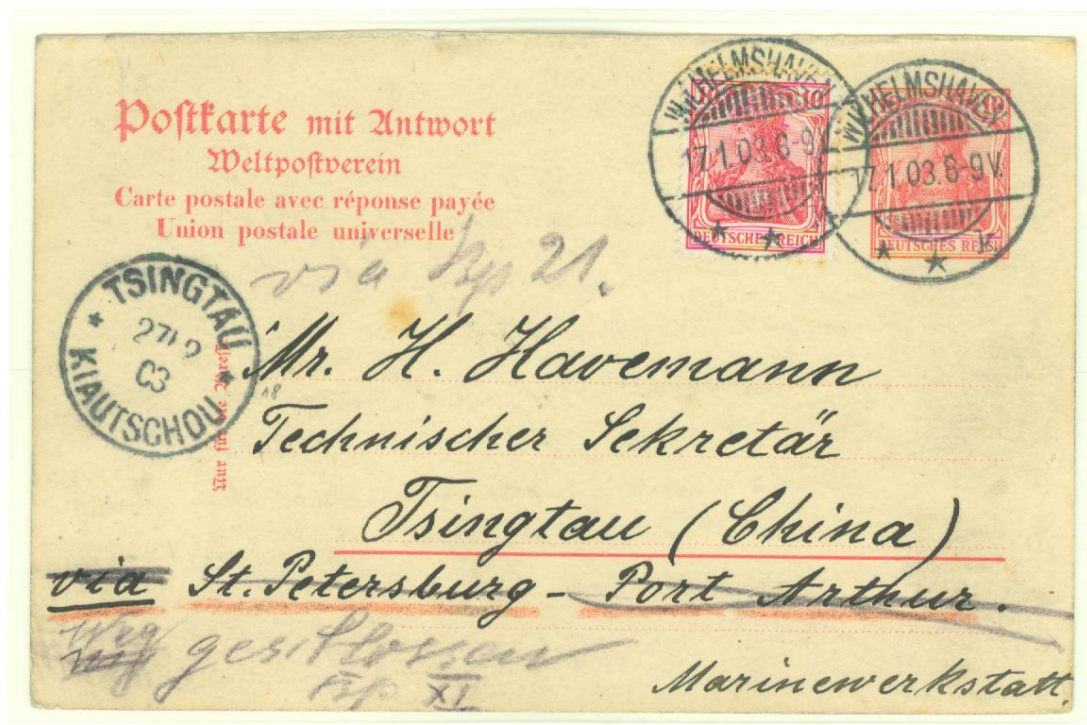 Postkarte mit Antwort
Weltpostverein
Carte postale avec réponse payée
Union postale universelle
WILHELMSHAVEN
17.1.03.8-9V.
10
DEUTSCHES REICH
WILHELMSHAVEN
17.1.03.8-9V.
10
DEUTSCHES REICH
via 21.
TSINGTAU
03
KIAUTSCHOU
Nur für
18
Mr. H. Havemann
Technischer Sekretär
Tsingtau (China)
via St. Petersburg - Port Arthur.
Weg geschlossen
XI
Marinewerkstatt.